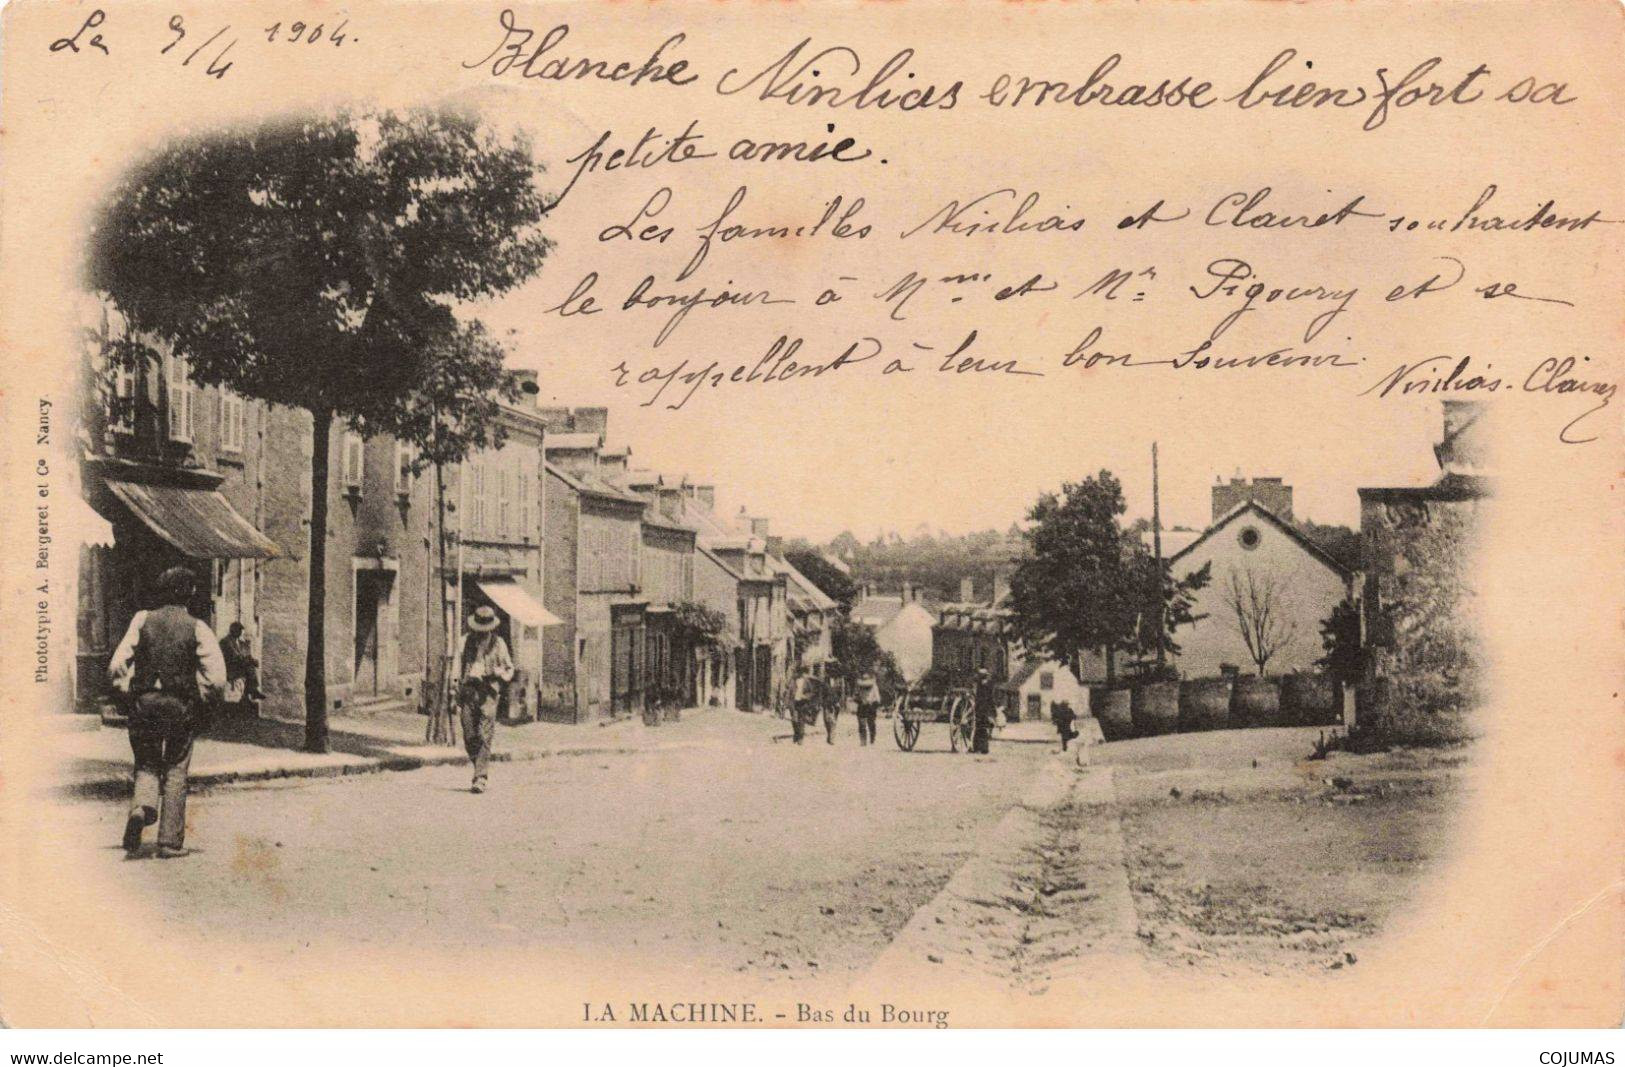 Le 9/4 1904.
Blanche Ninlias embrasse bien fort sa
petite amie.
Les familles Ninlias et Clairet souhaitent
le bonjour à Mme et Mr Pigoury et se
rappellent à leur bon souvenir.
Ninlias-Clairet
Phototypie A. Bergeret et Ce Nancy.
LA MACHINE. - Bas du Bourg
www.delcampe.net
COJUMAS